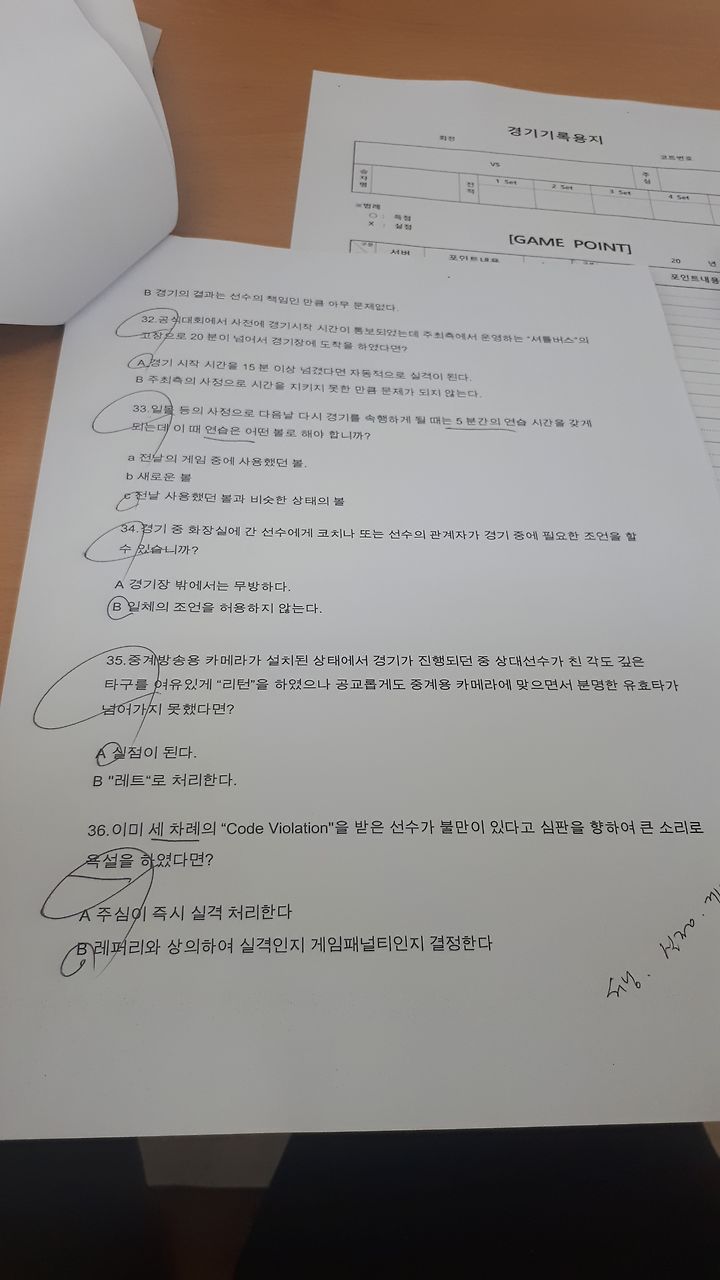 경기기록용지
회전
코트번호
VS
승자명
전적
1 Set
2 Set
3 Set
4 Set
주심
※범례
○ : 득점
× : 실점
[GAME POINT]
20 년
구분
서버
포인트내용
포인트내용
B 경기의 결과는 선수의 책임인 만큼 아무 문제없다.
32.공식대회에서 사전에 경기시작 시간이 통보되었는데 주최측에서 운영하는 “셔틀버스”의
고장으로 20 분이 넘어서 경기장에 도착을 하였다면?
A 경기 시작 시간을 15 분 이상 넘겼다면 자동적으로 실격이 된다.
B 주최측의 사정으로 시간을 지키지 못한 만큼 문제가 되지 않는다.
33.일몰 등의 사정으로 다음날 다시 경기를 속행하게 될 때는 5 분간의 연습 시간을 갖게
되는데 이 때 연습은 어떤 볼로 해야 합니까?
a 전날의 게임 중에 사용했던 볼.
b 새로운 볼
c 전날 사용했던 볼과 비슷한 상태의 볼
34.경기 중 화장실에 간 선수에게 코치나 또는 선수의 관계자가 경기 중에 필요한 조언을 할
수 있습니까?
A 경기장 밖에서는 무방하다.
B 일체의 조언을 허용하지 않는다.
35.중계방송용 카메라가 설치된 상태에서 경기가 진행되던 중 상대선수가 친 각도 깊은
타구를 여유있게 “리턴”을 하였으나 공교롭게도 중계용 카메라에 맞으면서 분명한 유효타가
넘어가지 못했다면?
A 실점이 된다.
B "레트“로 처리한다.
36.이미 세 차례의 “Code Violation"을 받은 선수가 불만이 있다고 심판을 향하여 큰 소리로
욕설을 하였다면?
A 주심이 즉시 실격 처리한다
B 레퍼리와 상의하여 실격인지 게임패널티인지 결정한다